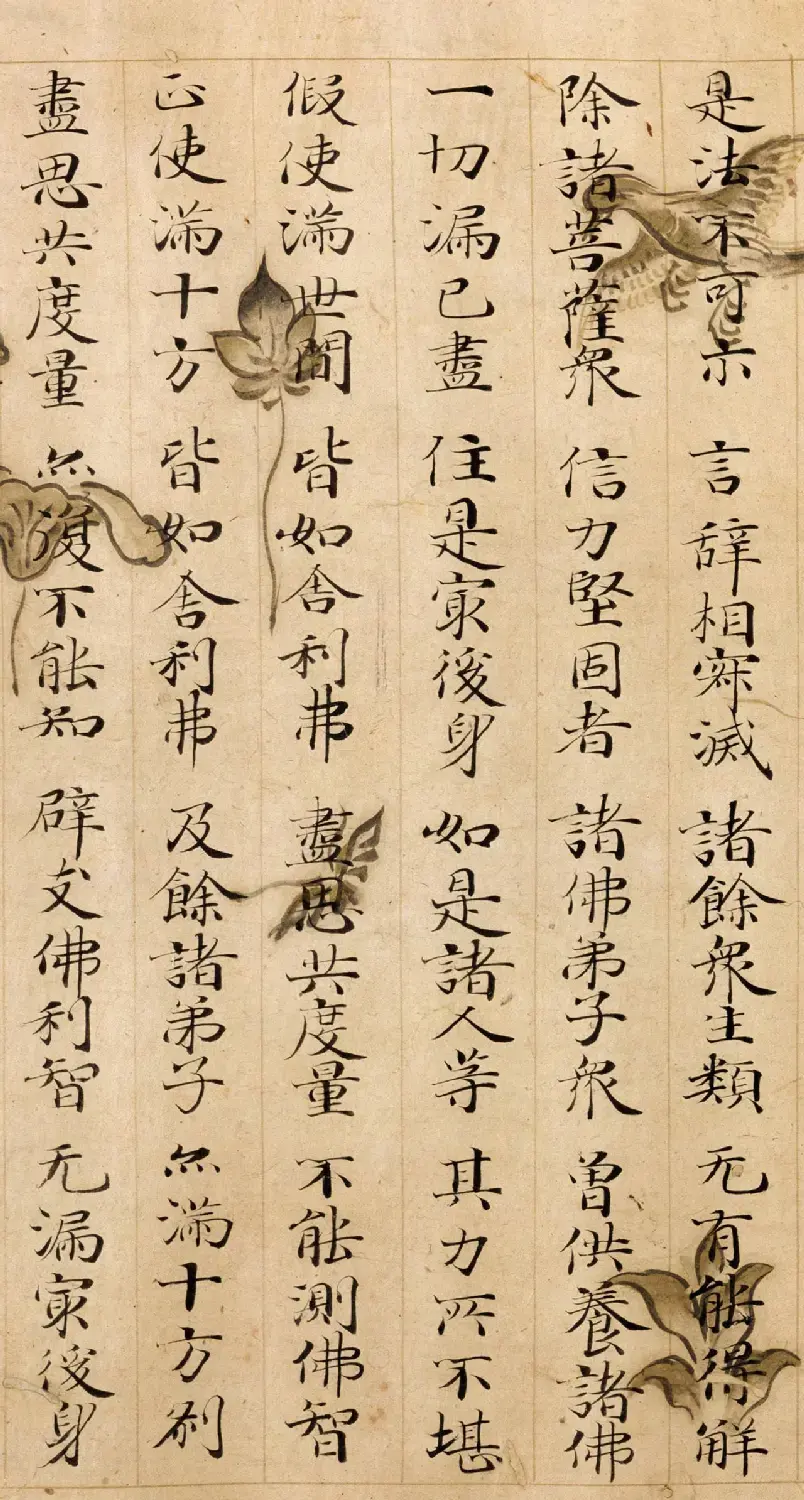 是法不可示 言辞相寂滅 諸餘衆生類 无有能得解
除諸菩薩衆 信力堅固者 諸佛弟子衆 曾供養諸佛
一切漏已盡 住是㝡後身 如是諸人等 其力所不堪
假使滿世間 皆如舍利弗 盡思共度量 不能測佛智
正使滿十方 皆如舍利弗 及餘諸弟子 亦滿十方刹
盡思共度量 亦復不能知 辟支佛利智 无漏㝡後身